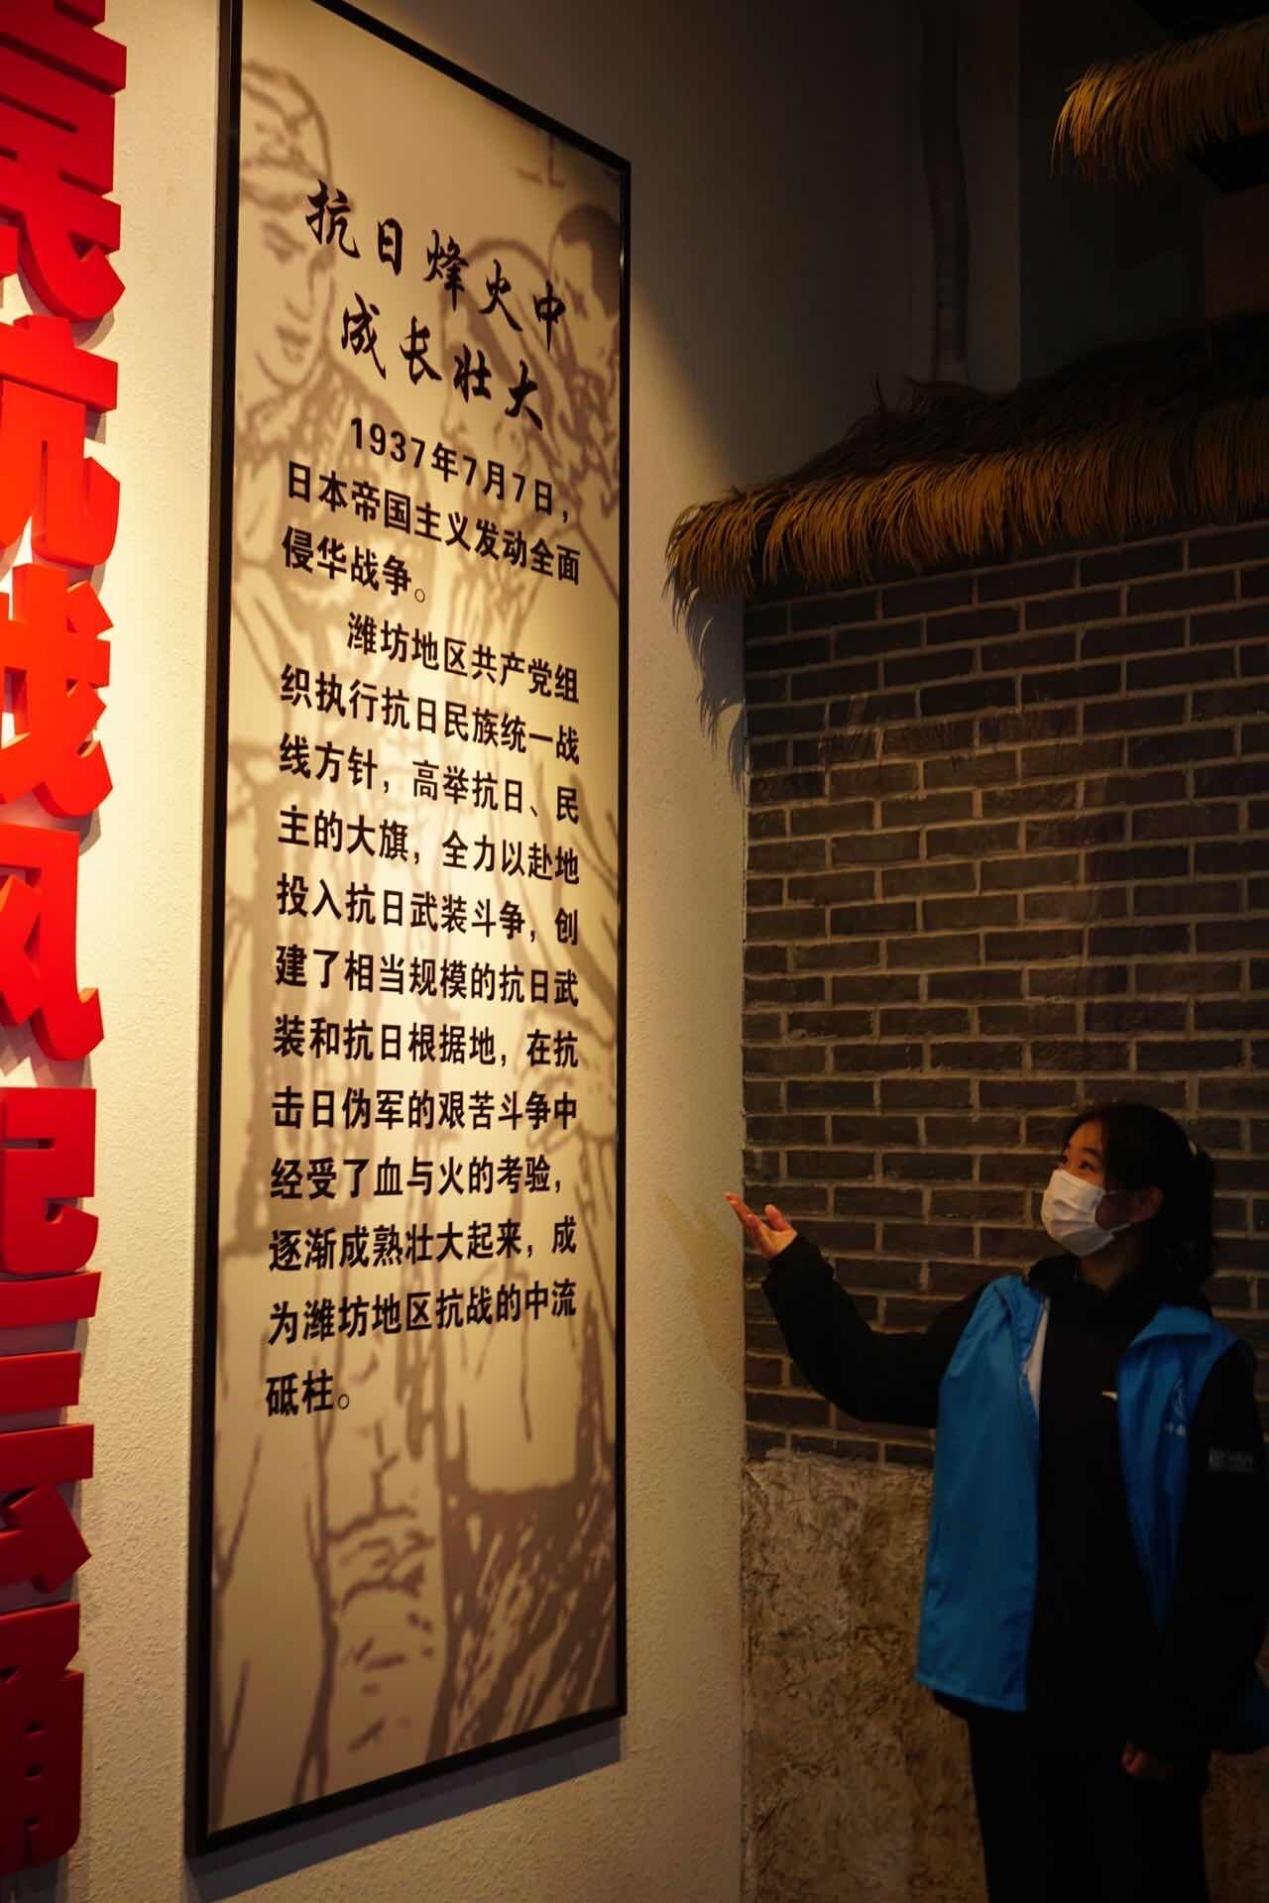 抗日烽火中
成长壮大
1937年7月7日，
日本帝国主义发动全面
侵华战争。
潍坊地区共产党组
织执行抗日民族统一战
线方针，高举抗日、民
主的大旗，全力以赴地
投入抗日武装斗争，创
建了相当规模的抗日武
装和抗日根据地，在抗
击日伪军的艰苦斗争中
经受了血与火的考验，
逐渐成熟壮大起来，成
为潍坊地区抗战的中流
砥柱。